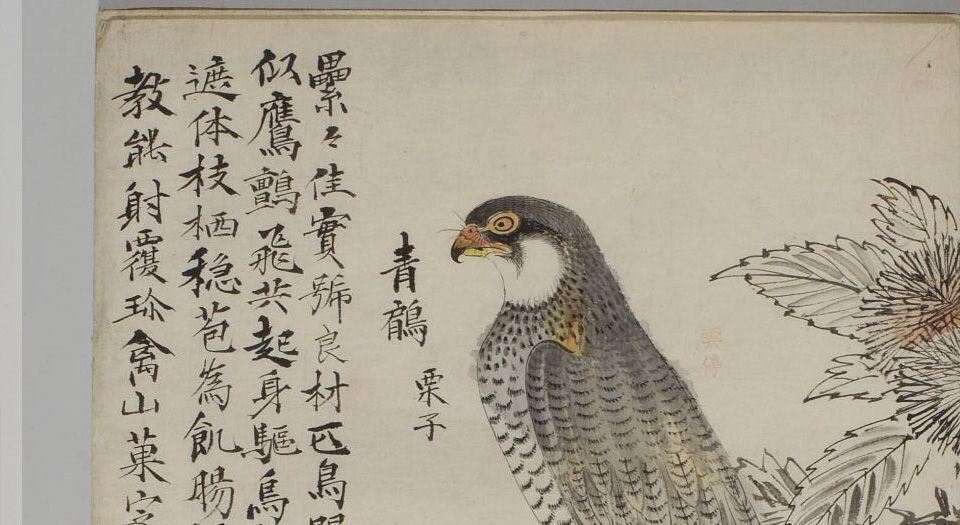 青鶻
栗子
纍々佳實號良材匹鳥
似鷹鸇飛共起身驅鳥
遮体枝栖穏苞為飢腸
教能射覆珍禽山菓